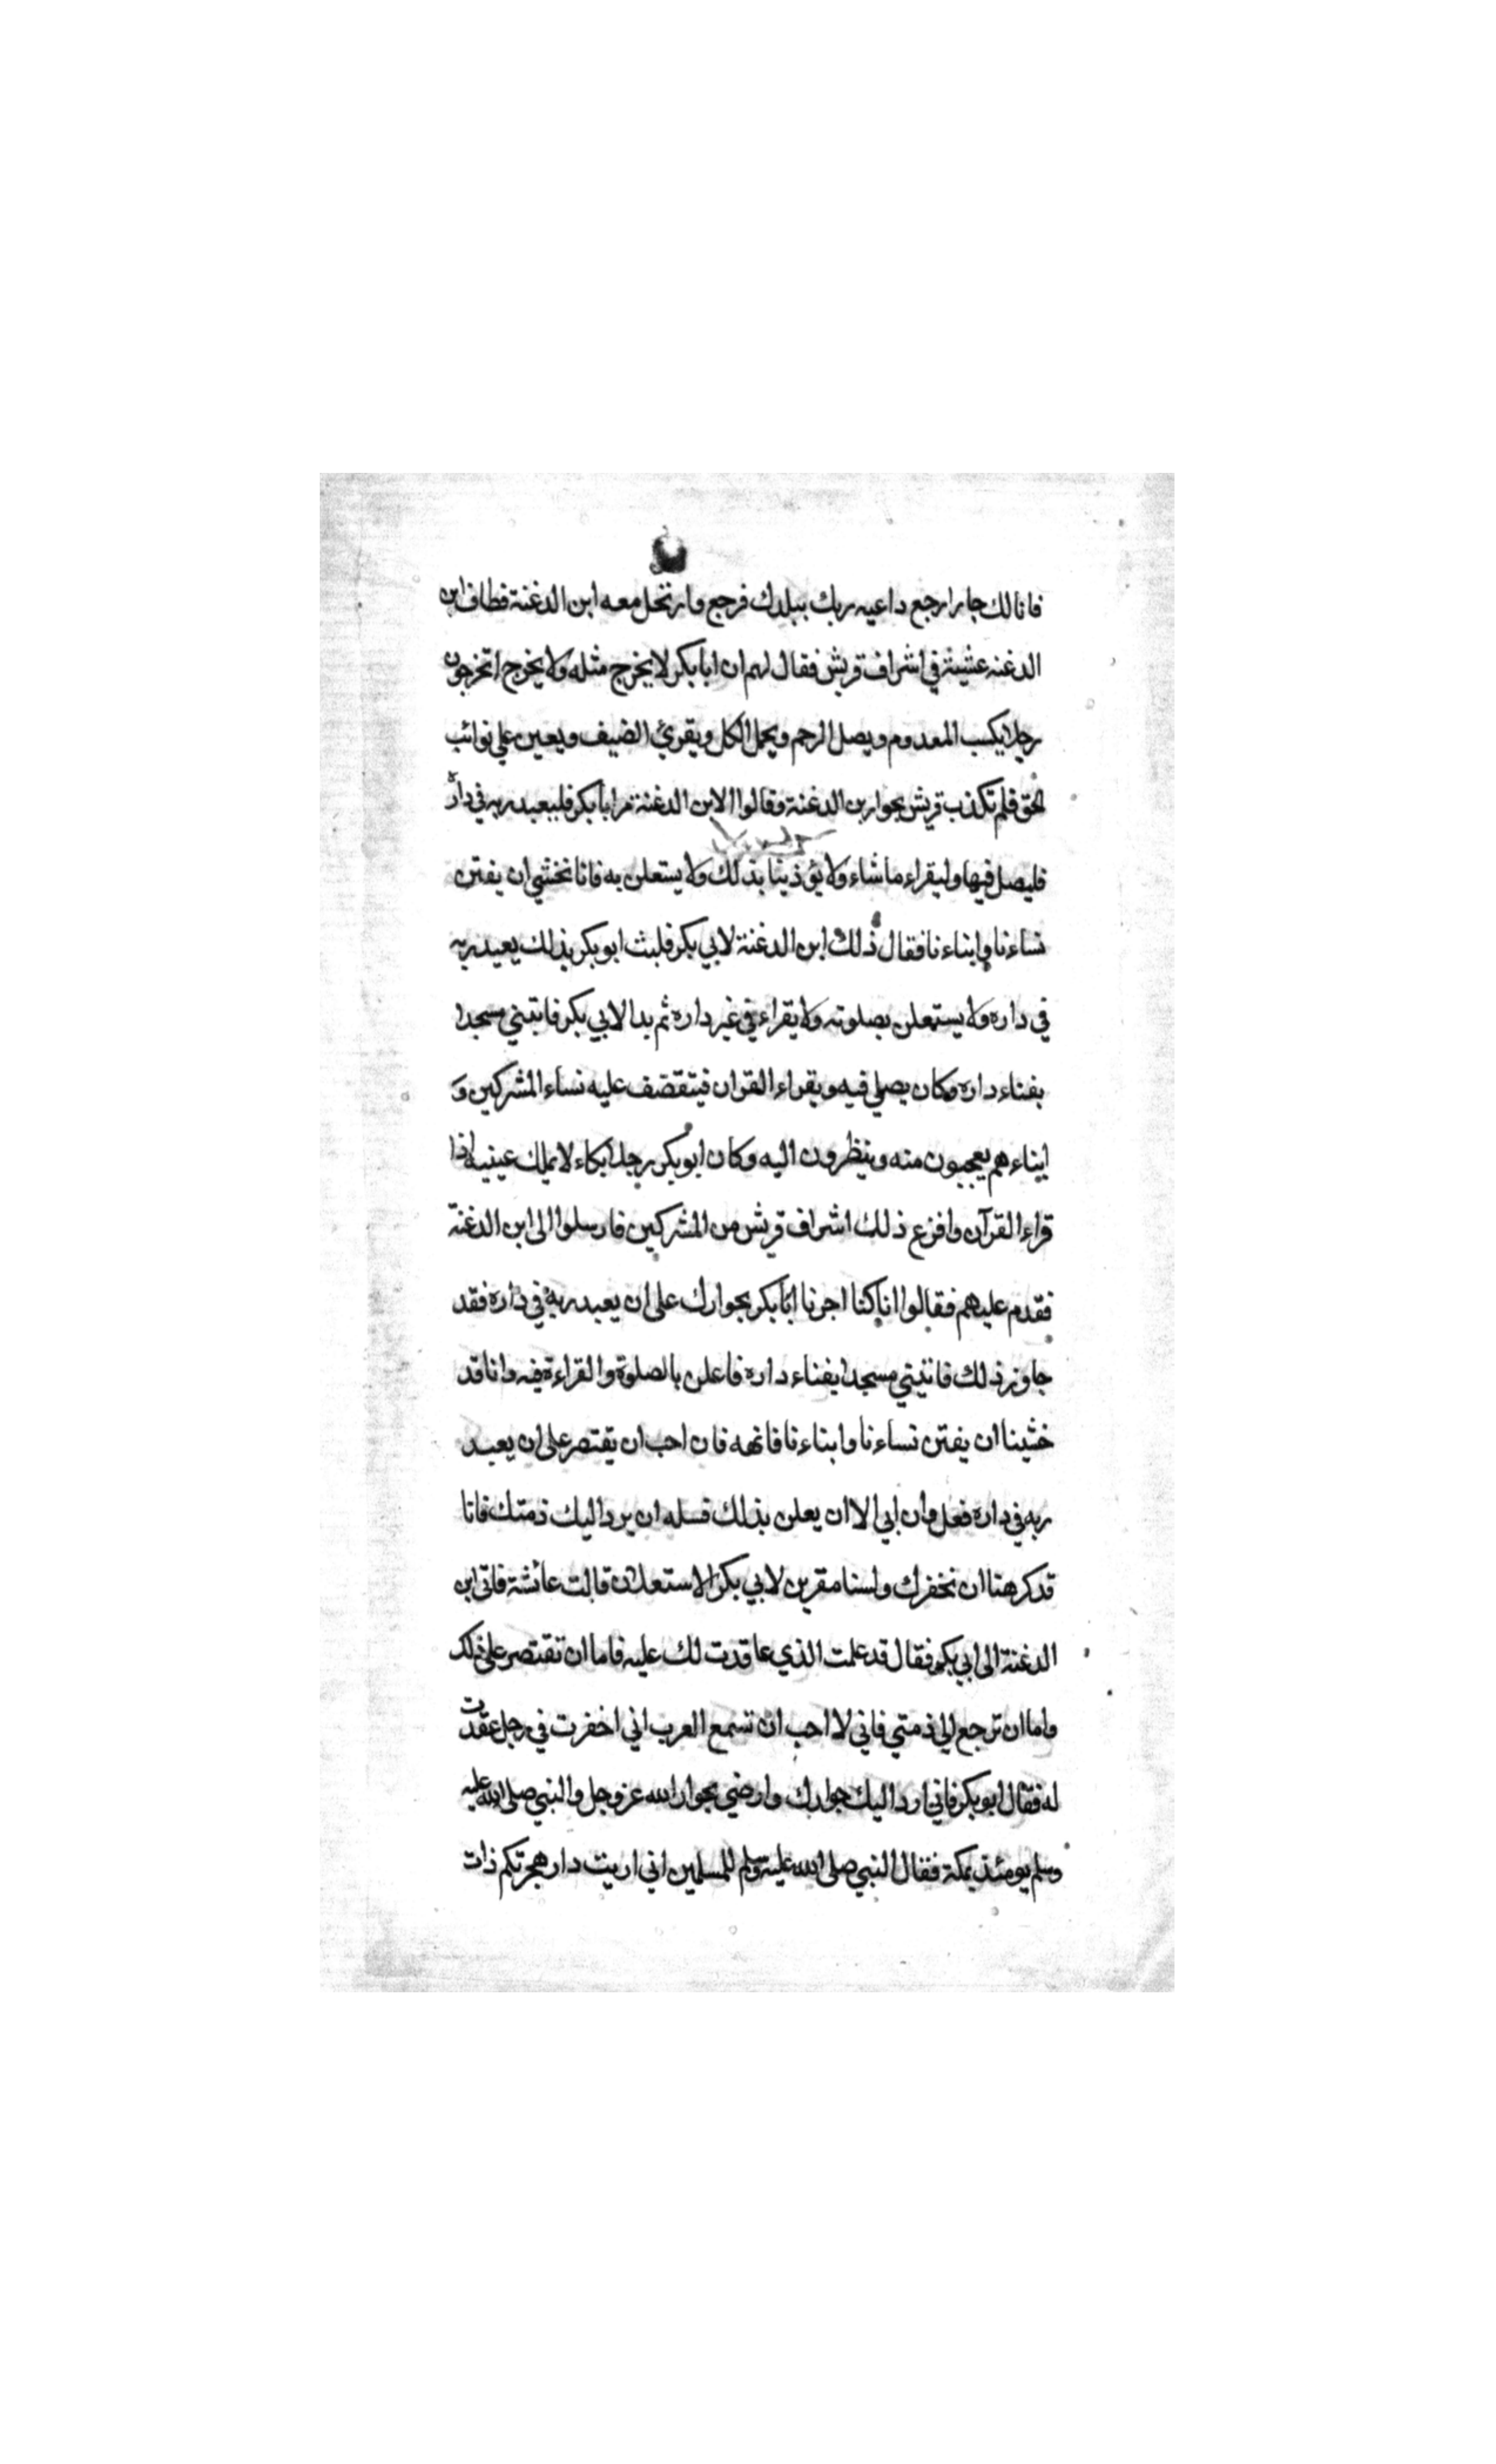 فانا لك جار ارجع واعبد ربك ببلدك فرجع وارتحل معه ابن الدغنة فطاف ابن
الدغنه عشية في اشراف قريش فقال لهم ان ابا بكر لا يخرج مثله ولا يخرج اتخرجون
رجلا يكسب المعدوم ويصل الرحم ويحمل الكل ويقري الضيف ويعين علي نوائب
الحق فلم تكذب قريش بجوار بن الدغنة وقالوا لابن الدغنة مر ابا بكر فليعبد ربه في داره
فليصل فيها وليقراء ما شاء ولا يؤذينا بذلك ولا يستعلن به فانا نخشي ان يفتن
نساءنا وابناءنا فقال ذلك ابن الدغنة لابي بكر فلبث ابو بكر بذلك يعبد ربه
في داره ولا يستعلن بصلوته ولا يقراء في غير داره ثم بدا لابي بكر فابتني مسجدا
بفناء داره وكان يصلي فيه ويقراء القران فيتقصف عليه نساء المشركين و
ابناءهم يعجبون منه وينظرون اليه وكان ابو بكر رجلا بكاء لا يملك عينيه اذا
قراء القرآن وافزع ذلك اشراف قريش من المشركين فارسلوا الى ابن الدغنة
فقدم عليهم فقالوا انا كنا اجرنا ابا بكر بجوارك على ان يعبد ربه في داره فقد
جاوز ذلك فابتني مسجدا بفناء داره فاعلن بالصلوة والقراءة فيه وانا قد
خشينا ان يفتن نساءنا وابناءنا فانهه فان احب ان يقتصر على ان يعبد
ربه في داره فعل وان ابي الا ان يعلن بذلك فسله ان يرد اليك ذمتك فانا
قد كرهنا ان نخفرك ولسنا مقرين لابي بكر الاستعلان قالت عائشة فاتى ابن
الدغنة الى ابي بكر فقال قد علمت الذي عاقدت لك عليه فاما ان تقتصر على ذلك
واما ان ترجع الي ذمتي فاني لا احب ان تسمع العرب اني اخفرت في رجل عقدت
له فقال ابو بكر فاني ارد اليك جوارك وارضي بجوار الله عز وجل والنبي صلى الله عليه
وسلم يومئذ بمكة فقال النبي صلى الله عليه وسلم للمسلمين اني اريت دار هجرتكم ذات